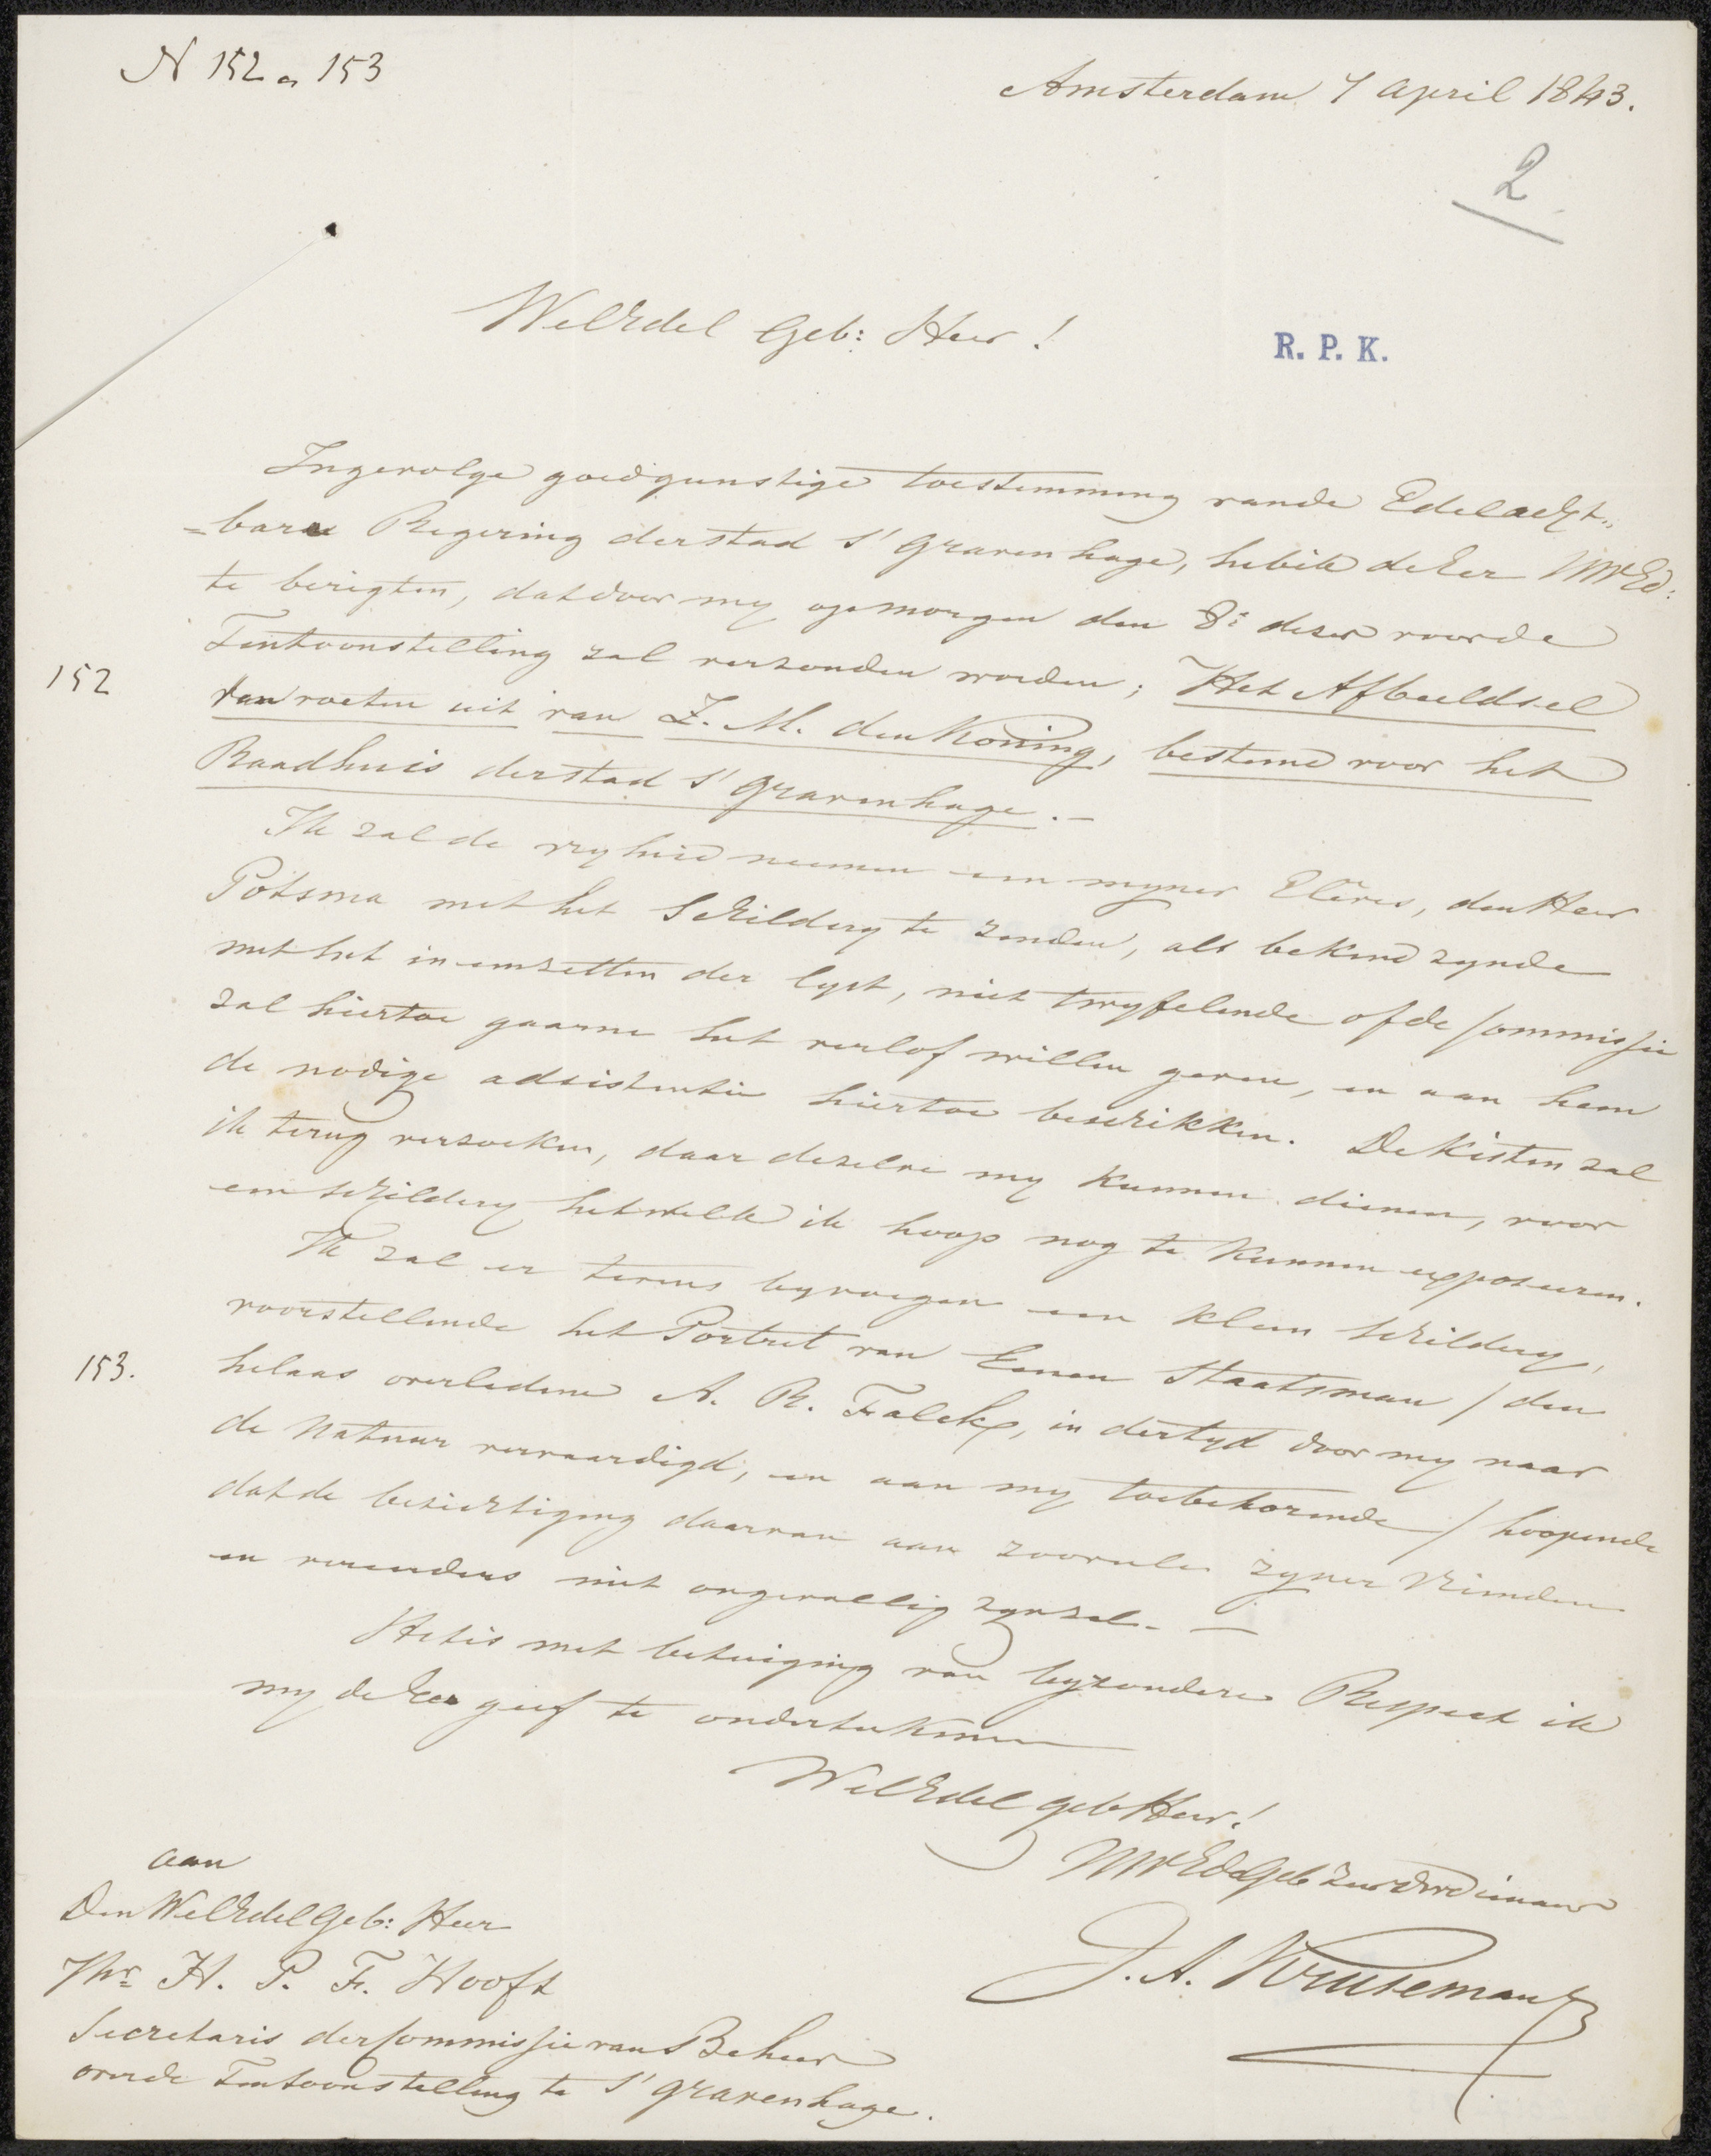 N 152 a 153
Amsterdam 7 April 1843.
2
WelEdel Geb: Heer!
R. P. K.
Ingevolge goedgunstige toestemming vande Edelacht„
=bare Regering derstad s'Gravenhage, hebik deEer UWEd:
te berigten, datdoor my op morgen den 8e dezer voorde
Tentoonstelling zal verzonden worden; Het Afbeeldsel
152
van voeten uit van Z. M. denKoning, bestemd voor het
Raadhuis derstad s'Gravenhage.—
Ik zalde vryheid neemen een myner Elèves, denHeer
Potsma methet Schildery te zenden, als bekend zynde
methet in eenzetten der lyst, niet twyfelende ofde Commissie
zal hiertoe gaarne het verlof willen geven, en aan hem
de nodige adsistentie hiertoe beschikken. DeKisten zal
ik terug verzoeken, daar dezelve my kunnen dienen, voor
een schildery hetwelk ik hoop nog te kunnen exposeeren.
Ik zal er tevens byvoegen een klein schildery,
voorstellende het Portret van Eenen Staatsman / den
153.
helaas overledene A. R. Falck, in dertyd door my naar
de Natuur vervaardigd, en aan my toebehorende / hoopende
datde bezichtiging daarvan aan zoovele zyner Vrienden
en vereerders niet ongevallig zynzal. —
Hetis met betuiging van byzondere Respect ik
my de Eer geef te onderteekenen
WelEdel geb Heer!
UWEdGeb zeer Dwdienaar
J. A. Kruseman
aan
Den WelEdelGeb: Heer
Jhr H. P. F. Hooft
Secretaris derCommissie van Beheer
overde Tentoonstelling te s'Gravenhage.